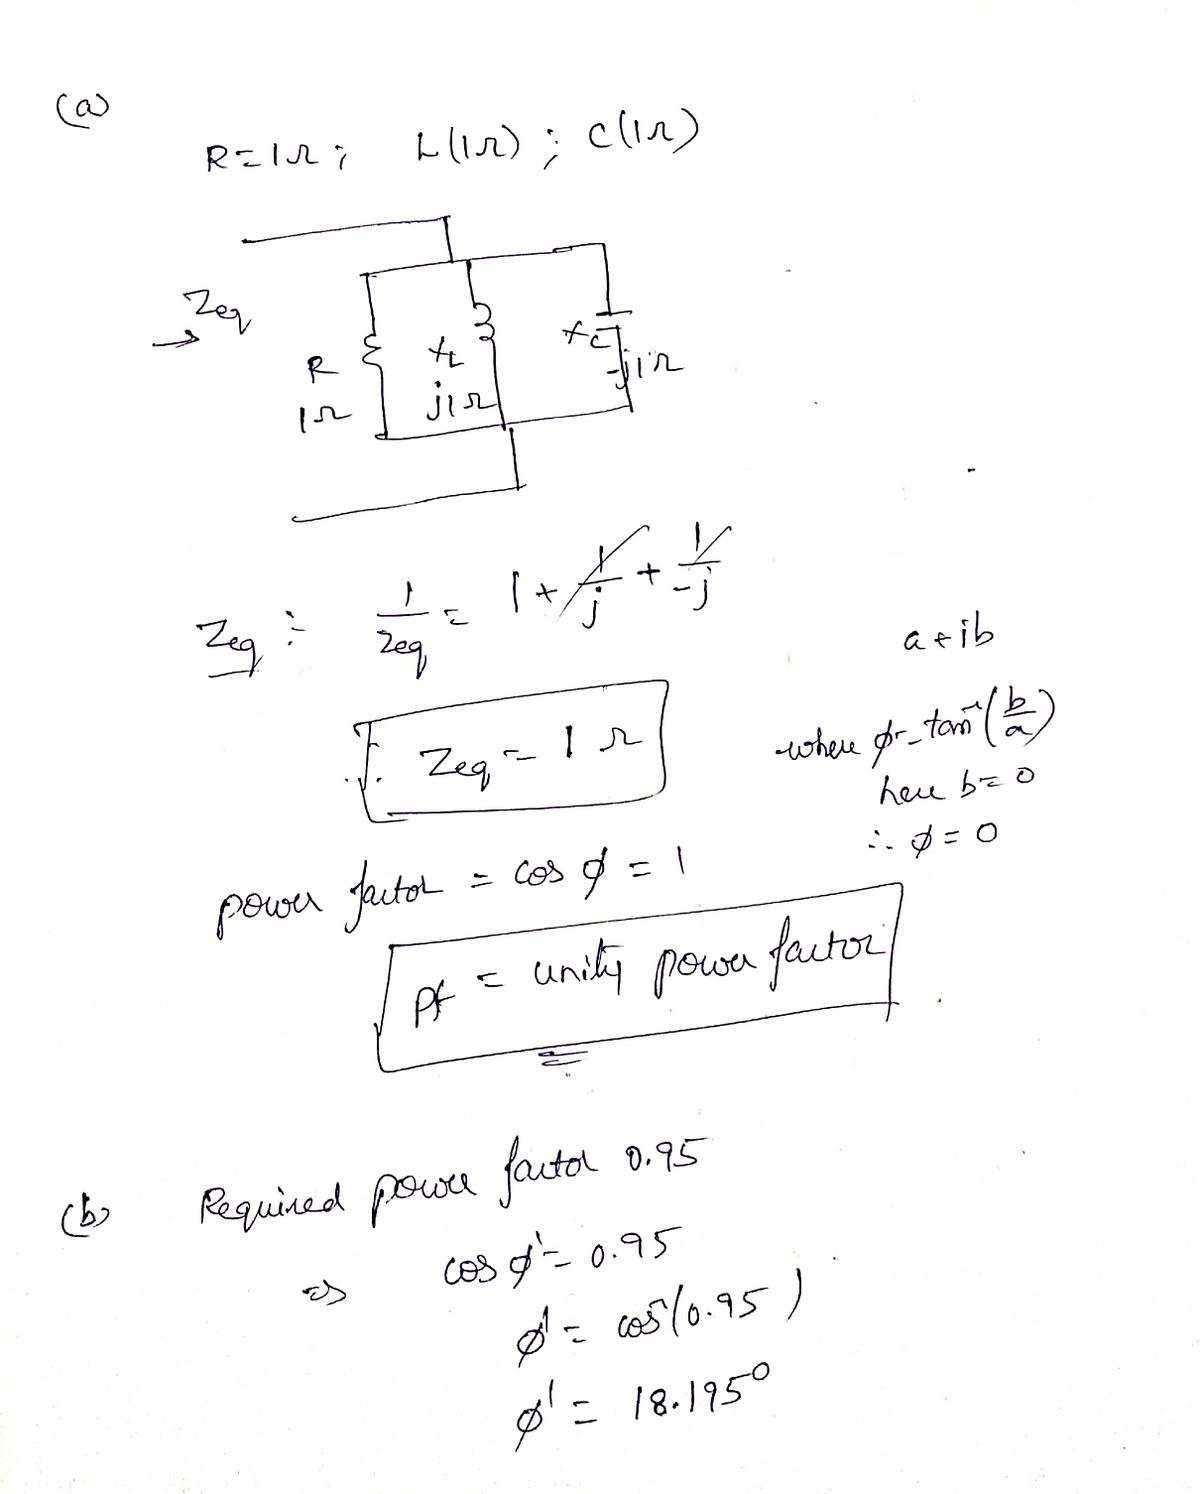 (a)
R=1Ω; L(1Ω); C(1Ω)
Zeq
→
R
1Ω
XL
j1Ω
XC
-j1Ω
Zeq : 1/Zeq = 1 + 1/j + 1/-j
∴ Zeq = 1Ω
a+ib
where φ = tan⁻¹(b/a)
here b=0
∴ φ=0
power factor = cos φ = 1
pf = unity power factor
(b) Required power factor 0.95
⇒ cos φ' = 0.95
φ' = cos⁻¹(0.95)
φ' = 18.195°